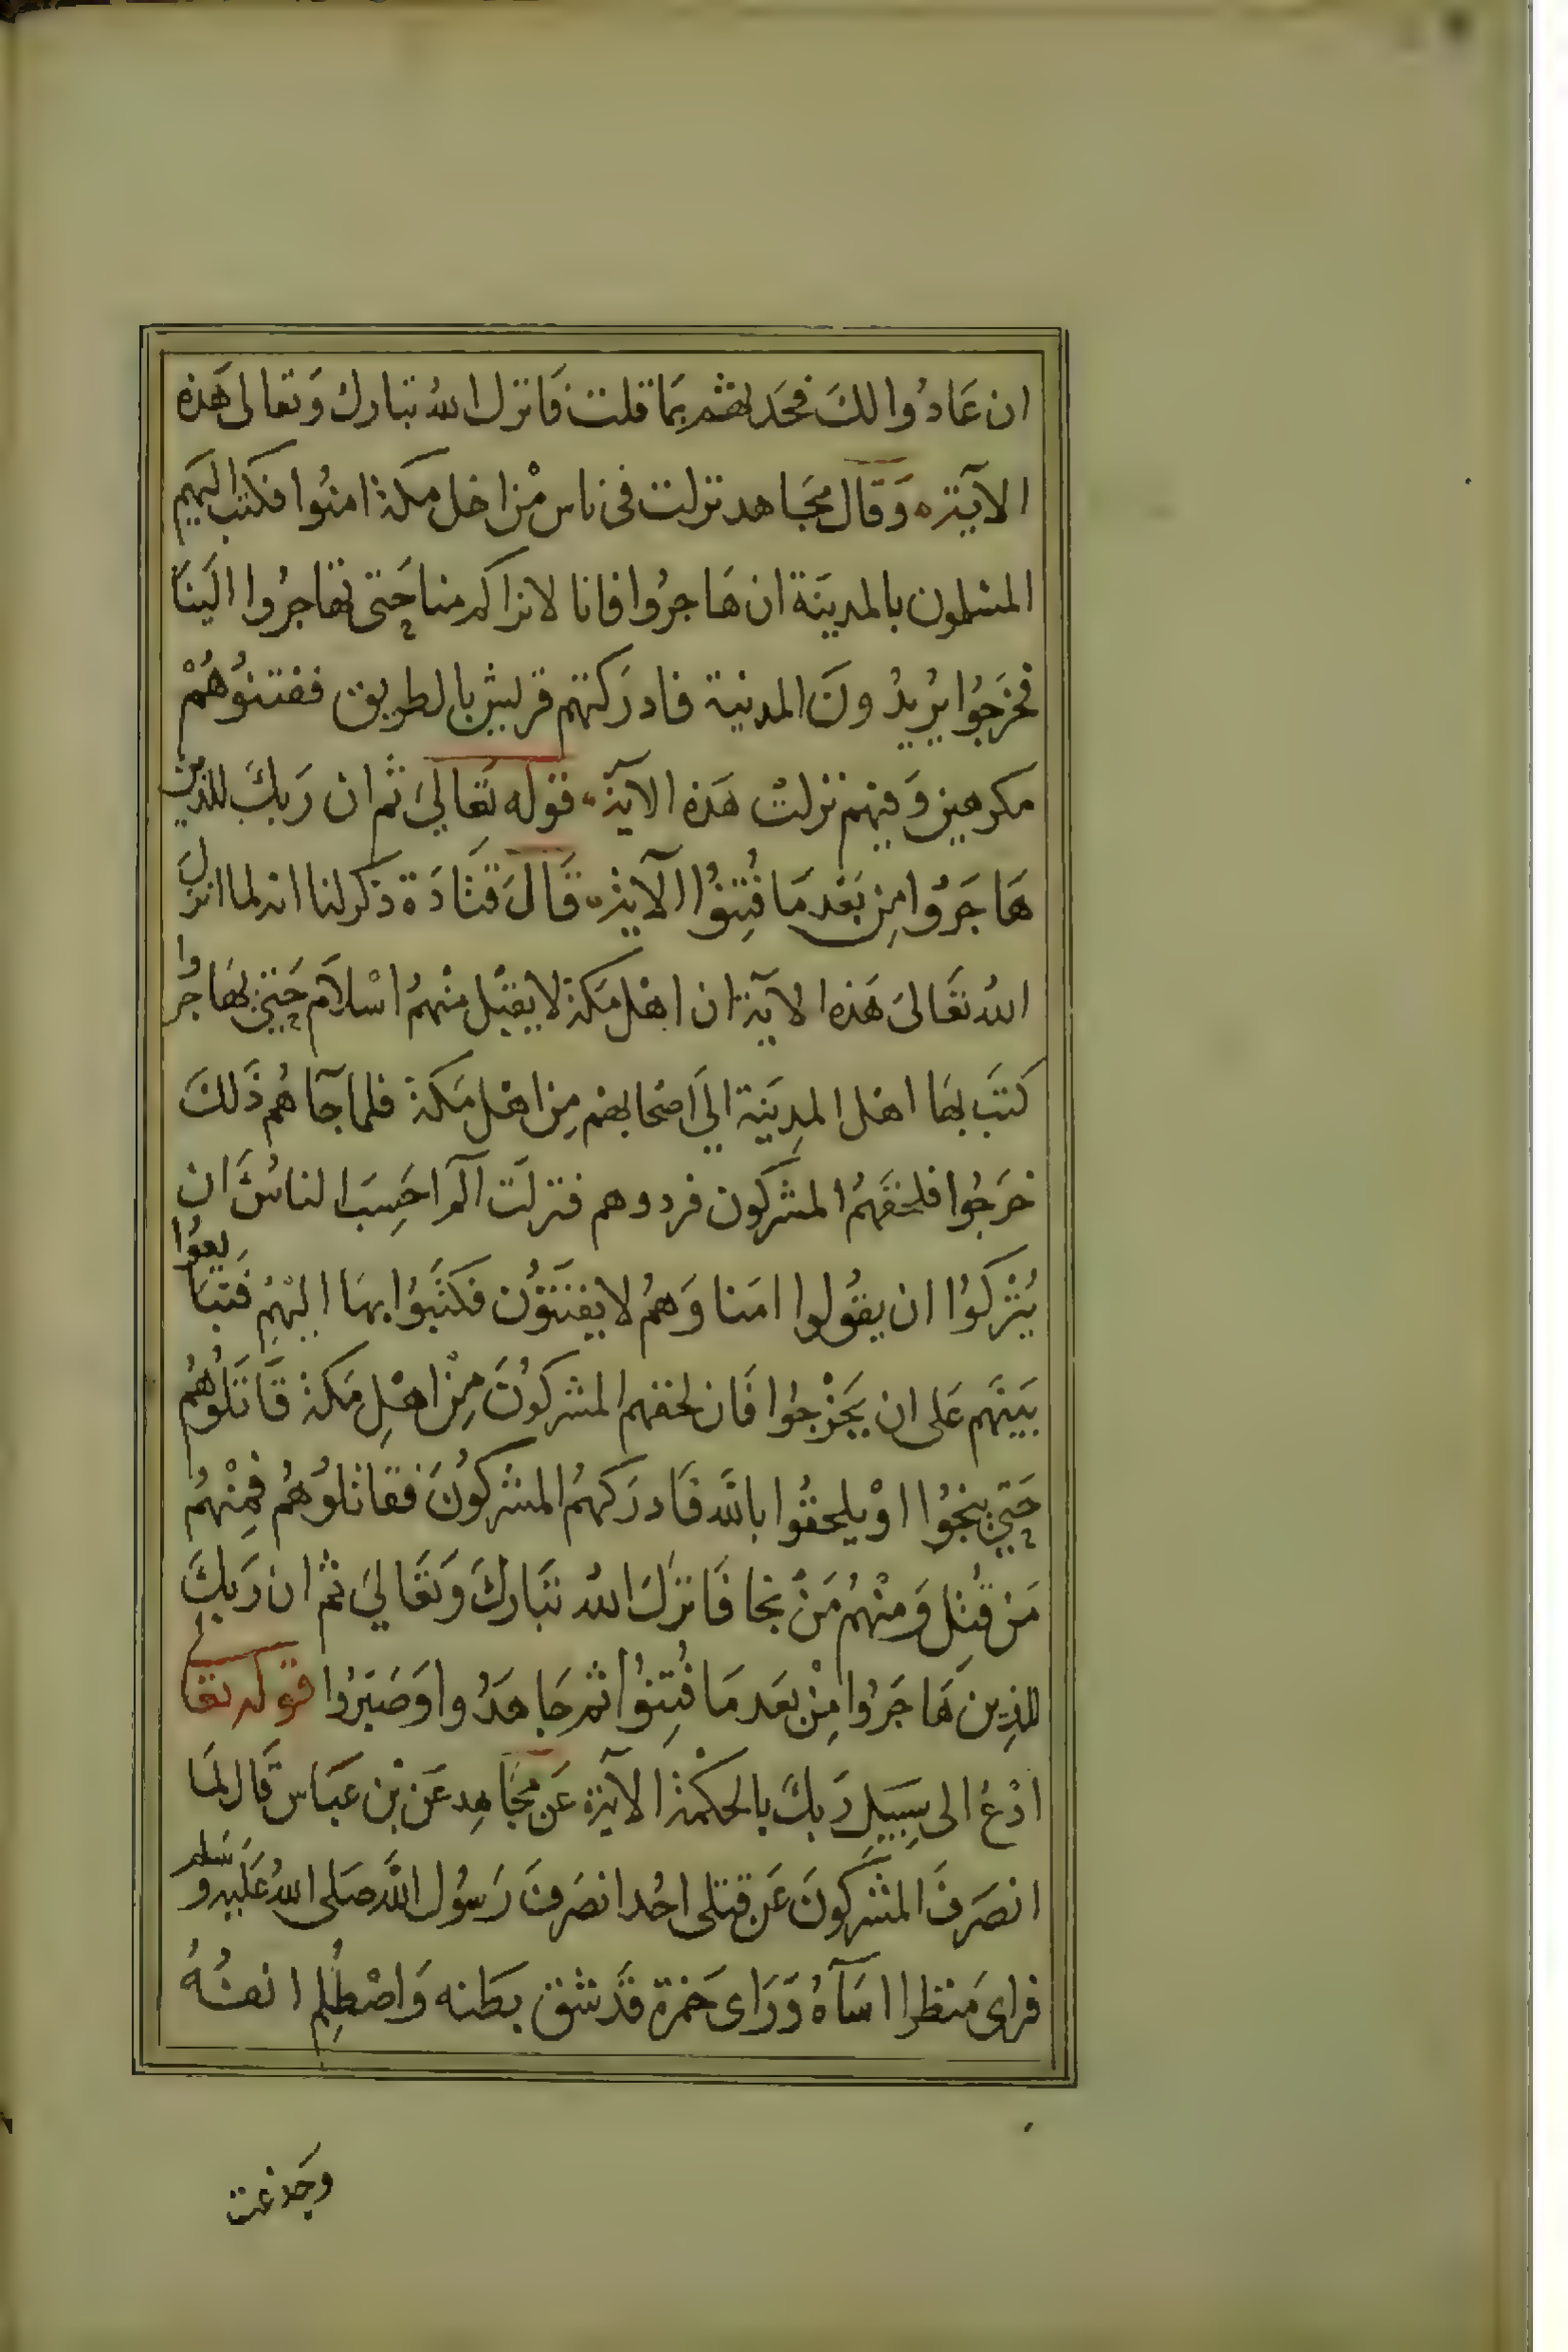 ان عَادُوا لكَ فحَد لهم بمَا قلت فَانزل اللهُ تبارك وَتعالى هَذه
الآيَة وَقال مجَاهد نزلت فى ناس مْن اهل مكة امنُوا فكتب اليهم
المسْلمون بالمدينَة ان هَاجرُوا فانا لا نراكم منا حَتى تهاجرُوا الَينَا
فخرَجُوا يُريدُونَ المدينة فادرَكتهم قريش بالطريق ففتنوُهُمْ
مكرهين وَفيهم نزلتْ هَذه الآية قوله تَعَاليَ ثم ان رَبكَ للذين
هَاجَرُوا مِن بَعْد مَا فُتِنوُا الآية قَالَ قتَادَة ذكر لنا انه لما انزلَ
اللهُ تعَالىَ هَذه الآية ان اهْل مَكة لا يقبْل منْهمُ اسْلام حَتىَ يهَاجرُوا
كتَب بهَا اهْل المدِينَة اليَ اصْحابهم مِن اهْل مَكة فلما جآهُم ذَلكَ
خرَجُوا فلحقهمُ المشركون فردوهم فنزلَت آلم احَسِبَ الناسُ ان
يُتْركوُا ان يقوُلوا امَنا وَهمُ لا يفتَنوُن فكتبَوُا بهَا اليْهِمْ فتَبَايعوُا
بَينَهم عَلى ان يَخْرجوُا فَان لحقهم المشركوُنَ مِنْ اهْلِ مَكة قَاتلوُهُم
حَتىَ ينجُوا اوْ يلحقُوا باللَّه فَادرَكهمُ المشركوُنَ فقاتلوُهُم فمِنْهمُ
مَن قُتِل وَمنْهمُ مَنْ نجا فَانزلَ اللهُ تبَاركَ وَتعَالىَ ثم ان رَبكَ
للذِين هَاجَرُوا مِنْ بَعَد مَا فُتِنوُا ثم جَاهَدُوا وَصَبَرُوا قوله تعَا
ادْعُ الى سَبيَلِ رَبكَ بالحكْمة الآية عَن مجَاهِد عَن بْن عَبَاس قَال لمَا
انصَرفَ المشركونَ عَن قتلى احُد انصَرفَ رَسوُل اللَّه صَلى اللهُ عَلَيه وسَلم
فراى مَنظرا اسَآهُ وَرَاى حَمزة قدَ شق بطنه وَاصْطُلِم انفُهُ
وجَدعت